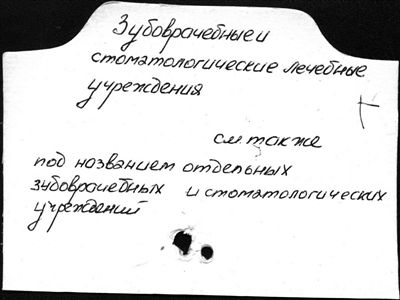 Зубоврачебные и
стоматологические лечебные
учреждения
см. также
под названием отдельных
зубоврачебных и стоматологических
учреждений